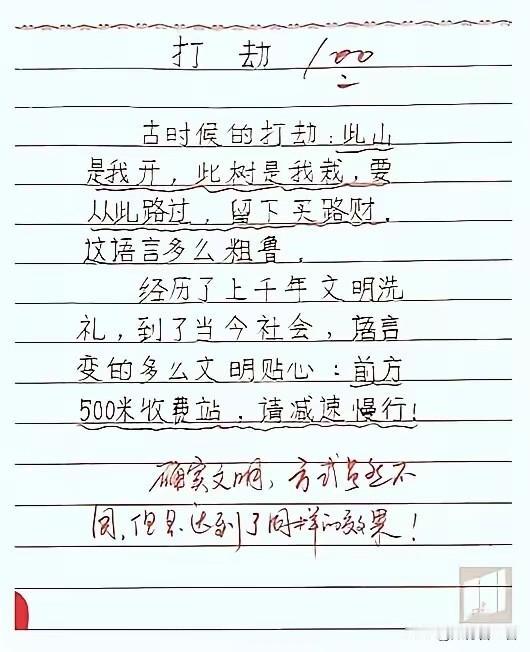 打劫 100
古时候的打劫：此山
是我开，此树是我栽，要
从此路过，留下买路财．
这语言多么粗鲁．
经历了上千年文明洗
礼，到了当今社会，语言
变的多么文明贴心：前方
500米收费站，请减速慢行！
确实文明，方式虽然不
同，但是达到了同样的效果！